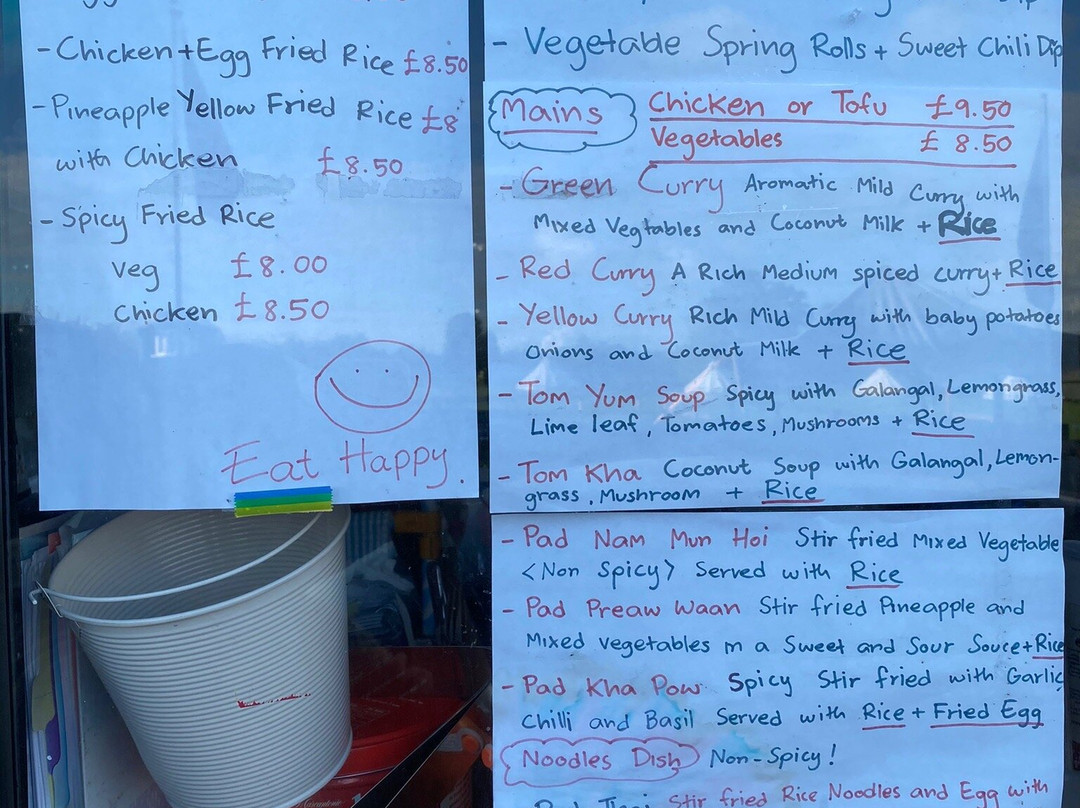 - Chicken+Egg Fried Rice £8.50
- Pineapple Yellow Fried Rice £8
with Chicken £8.50
- Spicy Fried Rice
Veg £8.00
Chicken £8.50
Eat Happy.
- Vegetable Spring Rolls + Sweet Chili Dip
Mains Chicken or Tofu £9.50
Vegetables £8.50
- Green Curry Aromatic Mild Curry with
Mixed Vegtables and Coconut Milk + Rice
- Red Curry A Rich Medium spiced curry+ Rice
- Yellow Curry Rich Mild Curry with baby potatoes
Onions and Coconut Milk + Rice
- Tom Yum Soup Spicy with Galangal, Lemongrass,
Lime leaf, Tomatoes, Mushrooms + Rice
- Tom Kha Coconut Soup with Galangal, Lemon-
grass, Mushroom + Rice
- Pad Nam Mun Hoi Stir fried Mixed Vegetable
<Non Spicy> Served with Rice
- Pad Preaw Waan Stir fried Pineapple and
Mixed vegetables in a Sweet and Sour Souce+Rice
- Pad Kha Pow Spicy Stir fried with Garlic
Chilli and Basil Served with Rice + Fried Egg
Noodles Dish Non-Spicy!
Stir fried Rice Noodles and Egg with